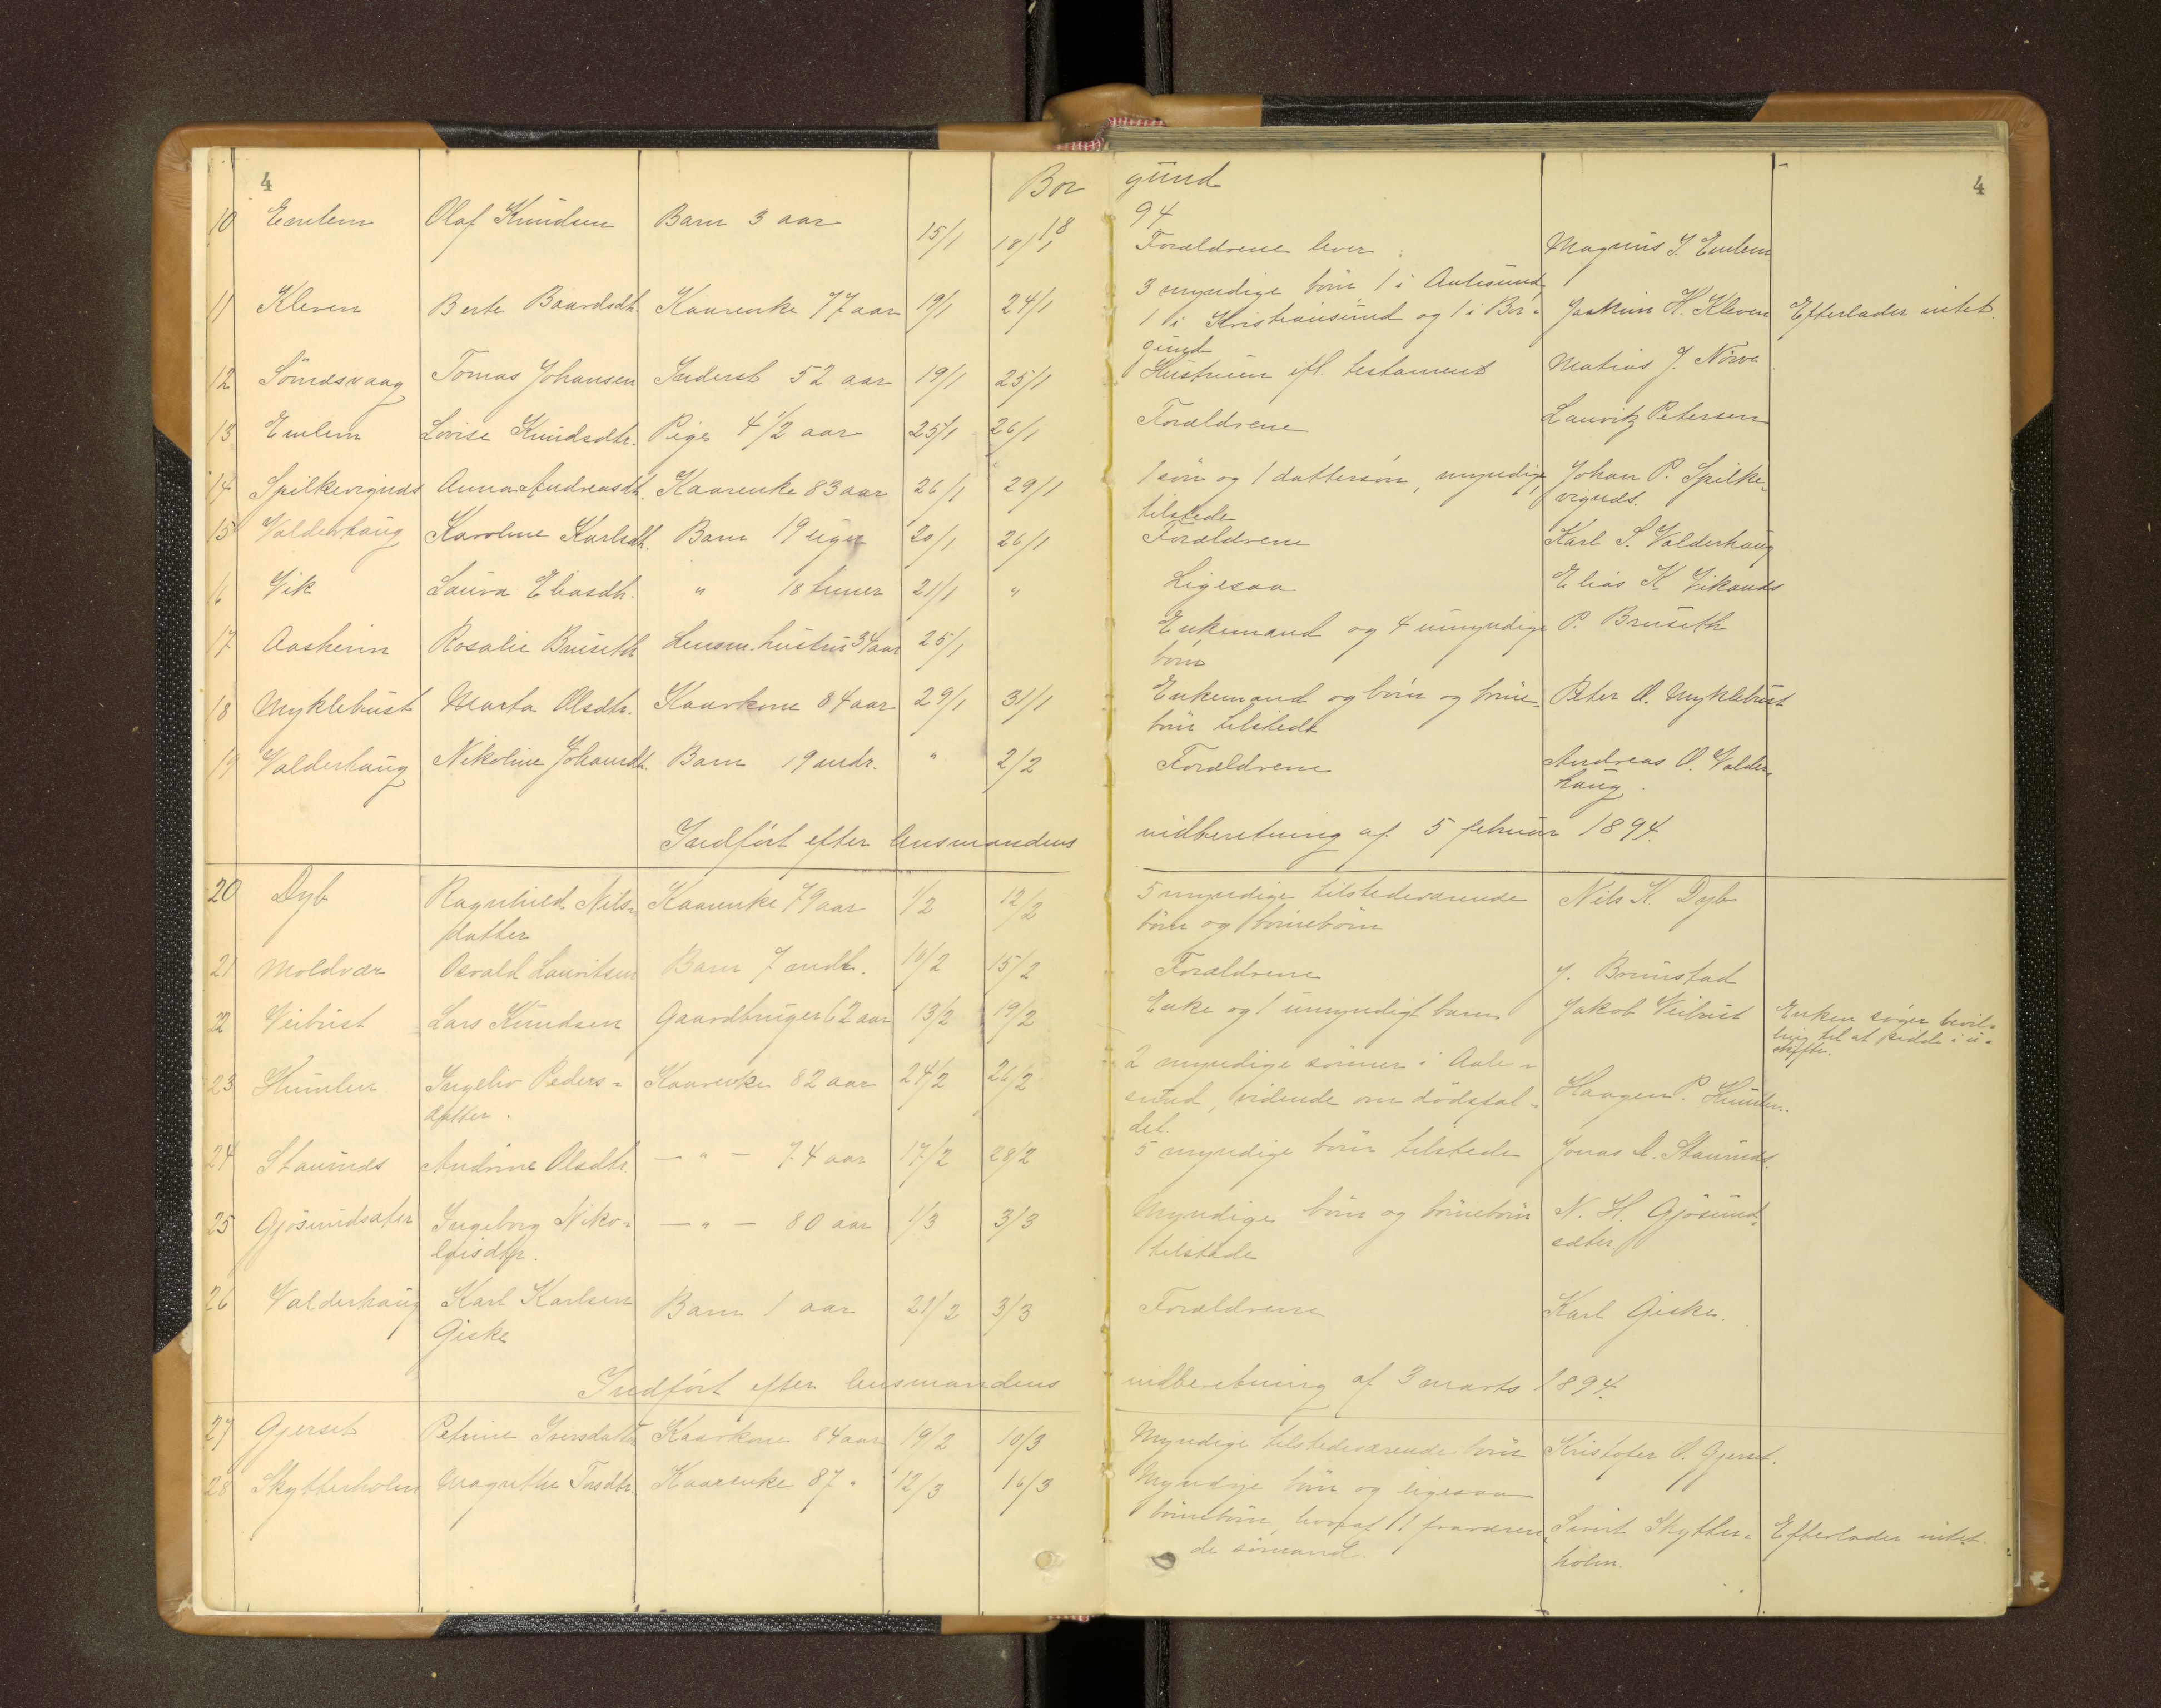 4 Bor gund 4
18 94
10 Emlem Olaf Knudsen Barn 3 aar 15/1 18/1 Forældrene lever Magnus I. Emlem
3 myndige börn 1 i Aalesund,
11 Kleven Berte Baardsdtr. Kaarenke 77 aar 19/1 24/1 1 i Kristiansund og 1 i Bor- Joakim H. Kleven Efterlader intet.
gund
12 Sömdsvaag Tomas Johansen Inderst 52 aar 19/1 25/1 Hustruen ifl. testament Matias J. Nörve
13 Emlem Lovise Knudsdtr. Pige 4 1/2 aar 25/1 26/1 Forældrene Lauritz Petersen
14 Spilkevignds Anna Andreasdt. Kaarenke 83 aar 26/1 29/1 1 sön og 1 dattersön, myndige, Johan P. Spilke-
tilstede vignds.
15 Valderhaug Karoline Karlsdt. Barn 19 uger 20/1 26/1 Forældrene Karl S. Valderhaug
16 Vik Laura Eliasdtr. " 18 timer 21/1 " Ligesaa Elias K. Vikands
17 Aasheim Rosalie Bruseth Lensm. hustru 34 aar 25/1 Enkemand og 4 umyndige P. Bruseth
börn
18 Myklebust Marta Olsdtr. Kaarkone 84 aar 29/1 31/1 Enkemand og börn og börne- Peter O. Myklebust
börn tilstede
19 Valderhaug Nikoline Johansdt. Barn 19 mdr. " 2/2 Forældrene Andreas O. Valder-
haug.
Indfört efter lensmandens indberetning af 5 februar 1894.
20 Dyb Ragnhild Nils- Kaarenke 79 aar 1/2 12/2 5 myndige tilstedeværende Nils K. Dyb
datter börn og börnebörn
21 Moldvær Osvald Lauritsen Barn 7 mdr. 10/2 15/2 Forældrene J. Brunstad
22 Veibust Lars Knudsen Gaardbruger 62 aar 13/2 19/2 Enke og 1 umyndigt barn Jakob Veibust Enken söger bevil-
ling til at sidde i u-
skifte.
2 myndige sönner i Aale-
23 Humlen Ingeliv Peders- Kaarenke 82 aar 24/2 26/2 sund, vidende om dödsfal- Haagen P. Humlen.
datter. det.
24 Staurnds Andrine Olsdtr. — " — 74 aar 17/2 28/2 5 myndige börn tilstede Jonas A. Staurnds.
25 Gjösundsæter Ingeborg Niko- — " — 80 aar 1/3 3/3 Myndige börn og börnebörn N. H. Gjösund-
laisdtr. tilstede sæter
26 Valderhaug Karl Karlsen Barn 1 aar 21/2 3/3 Forældrene Karl Giske.
Giske
Indfört efter lensmandens indberetning af 3 marts 1894.
27 Gjerset Petrine Iversdatter Kaarkone 84 aar 19/2 10/3 Myndige tilstedeværende börn Kristofer O. Gjerset.
28 Skytterholm Magrethe Torsdtr. Kaarenke 87 " 12/3 16/3 Myndige börn og ligesaa
börnebörn, hvoraf 1 fraværen- Sivert Skytter- Efterlader intet.
de sömand. holm.